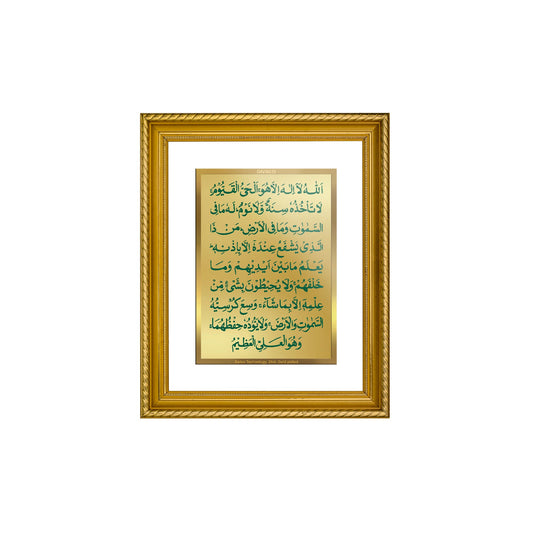 DIVINITI
اَللّٰهُ لَآ اِلٰهَ اِلَّا هُوَ ۚ اَلْحَيُّ الْقَيُّوْمُ ۚ
لَا تَاْخُذُهٗ سِنَةٌ وَّلَا نَوْمٌ ؕ لَهٗ مَا فِى
السَّمٰوٰتِ وَمَا فِى الْاَرْضِ ؕ مَنْ ذَا
الَّذِىْ يَشْفَعُ عِنْدَهٗٓ اِلَّا بِاِذْنِهٖ ؕ
يَعْلَمُ مَا بَيْنَ اَيْدِيْهِمْ وَمَا
خَلْفَهُمْ ۚ وَلَا يُحِيْطُوْنَ بِشَىْءٍ مِّنْ
عِلْمِهٖٓ اِلَّا بِمَا شَآءَ ۚ وَسِعَ كُرْسِيُّهُ
السَّمٰوٰتِ وَالْاَرْضَ ۚ وَلَا يَـُٔوْدُهٗ حِفْظُهُمَا ۚ
وَهُوَ الْعَلِىُّ الْعَظِيْمُ